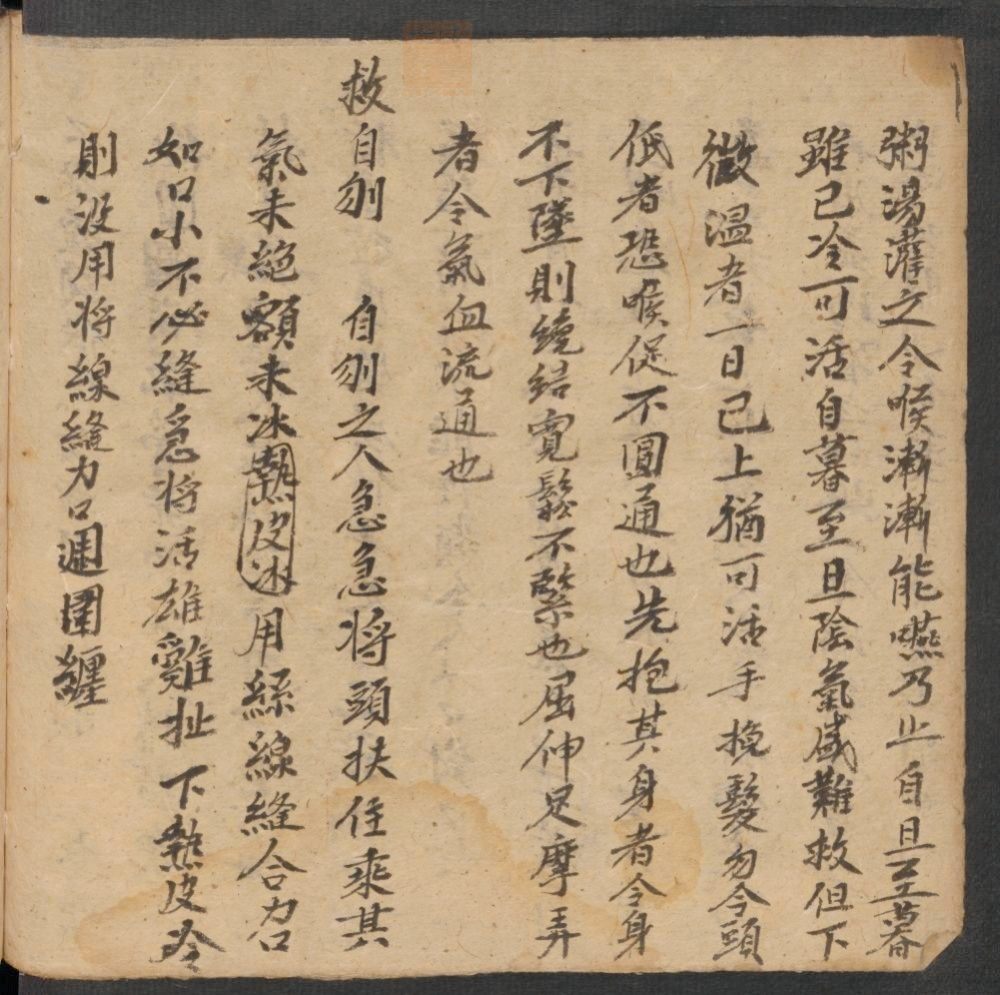 粥湯灌之令喉漸漸能嚥乃止自旦至暮
雖已冷可活自暮至旦陰氣盛難救但下
微温者一日已上猶可活手挽髮勿令頭
低者恐喉促不圓通也先抱其身者令身
不下墜則繞結寬鬆不緊也屈伸足摩弄
者令氣血流通也
救自刎 自刎之人急急将頭扶住乘其
氣未絕額未冰熱皮冰用絲線縫合刀口
如口小不必縫急将活雄雞扯下熱皮冷
則没用将線縫刀口週圍纏